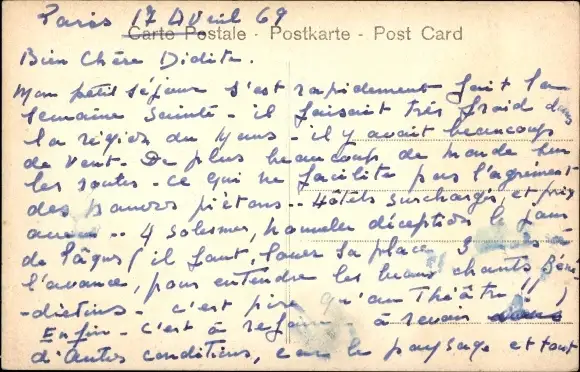 Paris 17 Avril 69
Carte Postale · Postkarte · Post Card
Bien Chère Didite.
Mon petit séjour s'est rapidement fait la
semaine sainte - il faisait très froid dans
la région du Mans - il y avait beaucoup
de vent - De plus beaucoup de monde sur
les routes - ce qui ne facilite pas l'agrément
des pauvres piétons.. Hôtels surchargés, et prix
.. A Solesmes, nouvelle déception le jour
de Pâques (il faut louer sa place 3 à
l'avance, pour entendre les beaux chants Béné-
-dictins - c'est pire qu'au Théâtre !! )
Enfin - c'est à refaire - à revoir dans
d'autres conditions, car le paysage et tout